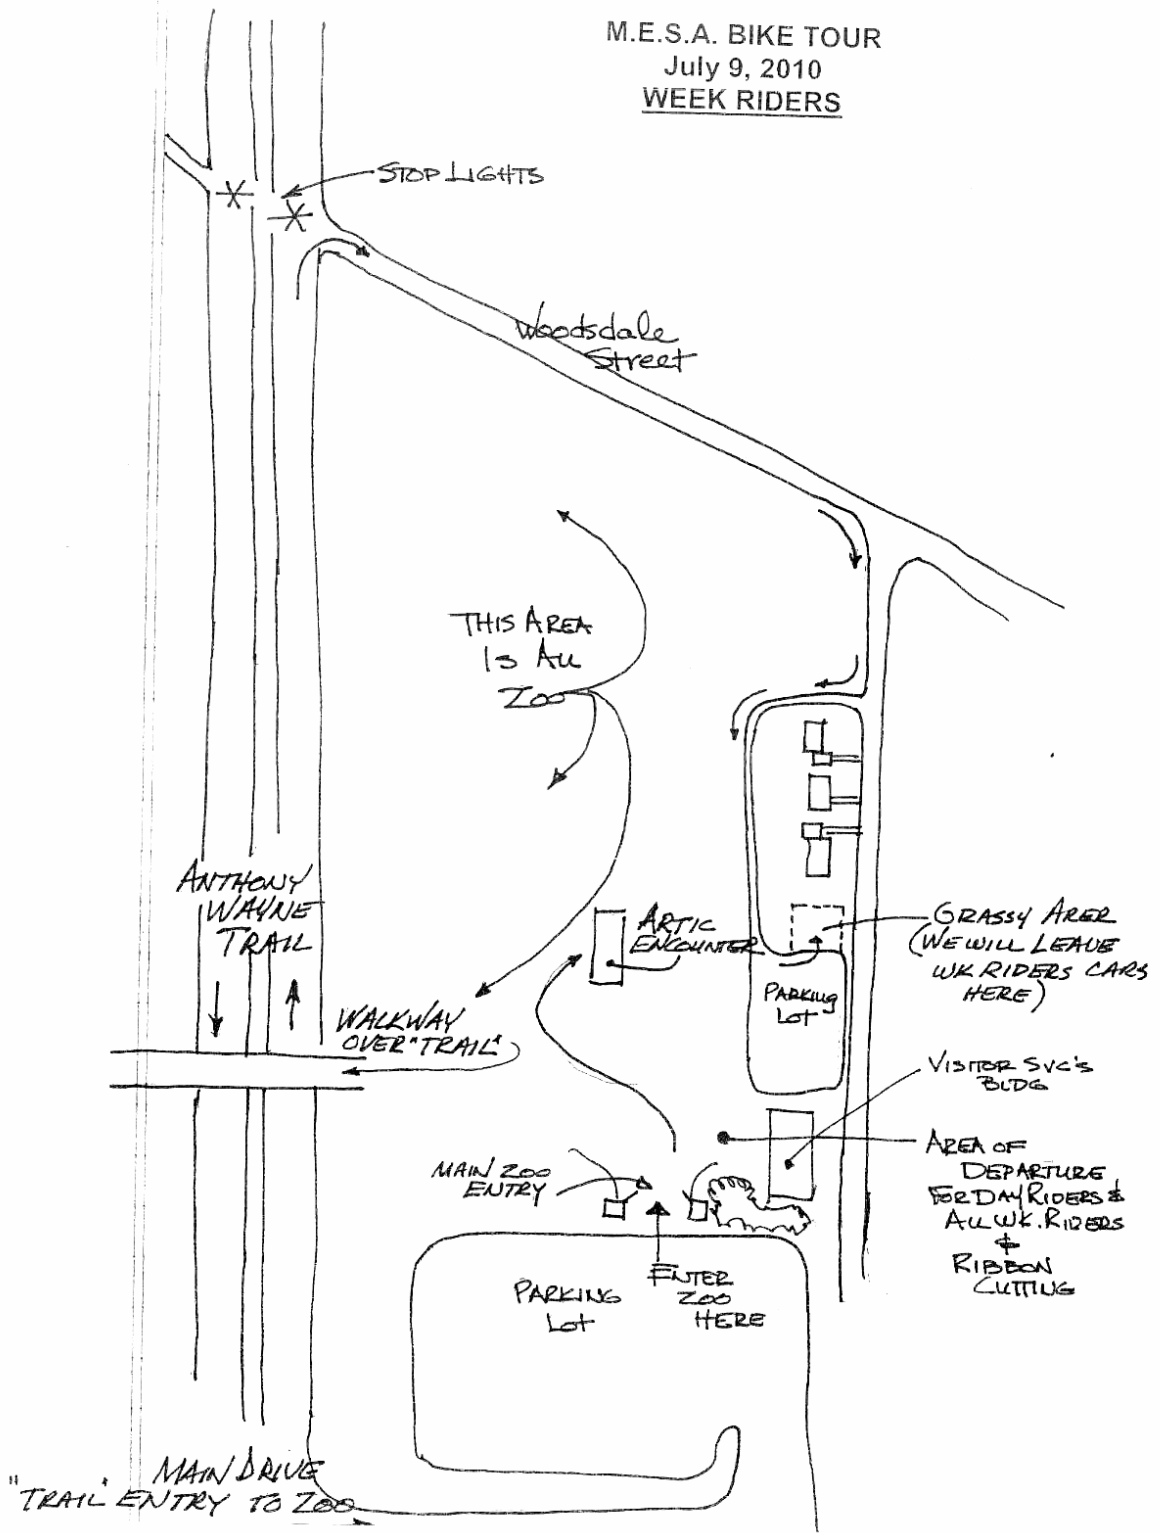 M.E.S.A. BIKE TOUR
July 9, 2010
WEEK RIDERS
STOP LIGHTS
Woodsdale
Street
THIS AREA
IS ALL
ZOO
ANTHONY
WAYNE
TRAIL
ARTIC
ENCOUNTER
GRASSY AREA
(WE WILL LEAVE
WK RIDERS CARS
HERE)
PARKING
LOT
WALKWAY
OVER "TRAIL"
VISITOR SVC'S
BLDG
AREA OF
DEPARTURE
FOR DAY RIDERS &
ALL WK. RIDERS
+
RIBBON
CUTTING
MAIN ZOO
ENTRY
ENTER
ZOO
HERE
PARKING
LOT
MAIN DRIVE
"TRAIL" ENTRY TO ZOO